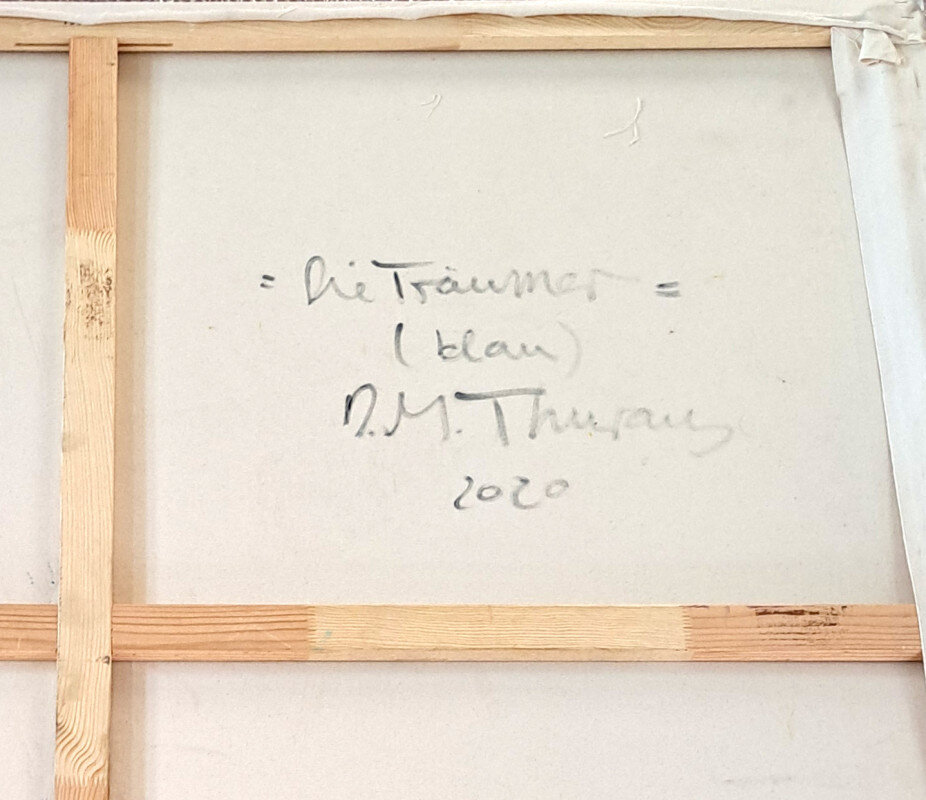 = Die Träumer =
(blau)
D.M. Thurau
2020